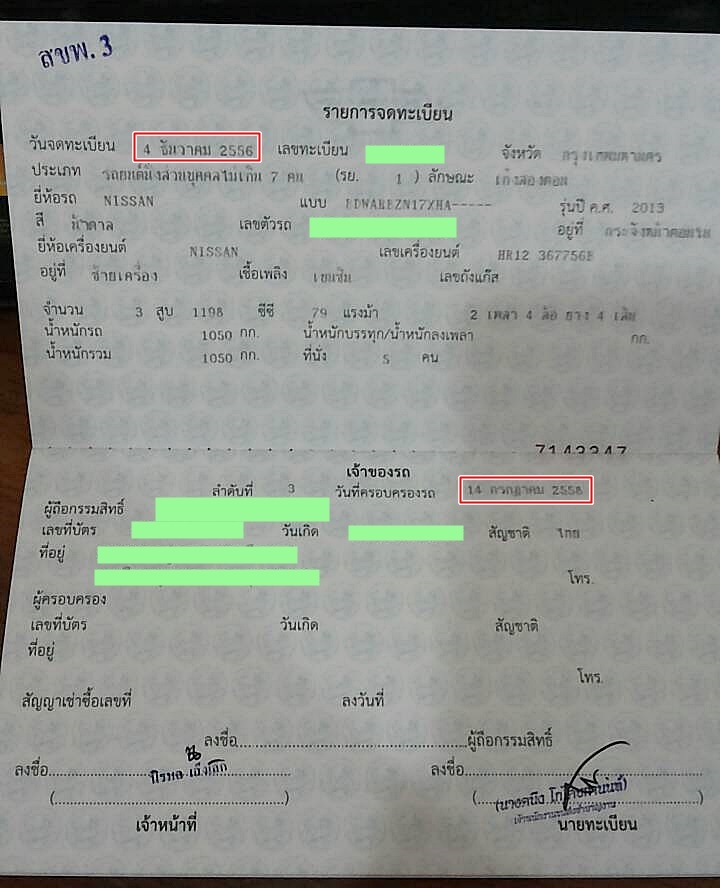 สขพ. 3
รายการจดทะเบียน
วันจดทะเบียน 4 ธันวาคม 2556 เลขทะเบียน จังหวัด กรุงเทพมหานคร
ประเภท รถยนต์นั่งส่วนบุคคลไม่เกิน 7 คน (รย. 1 ) ลักษณะ เก๋งสองตอน
ยี่ห้อรถ NISSAN แบบ รุ่นปี ค.ศ. 2013
สี น้ำตาล เลขตัวรถ อยู่ที่
ยี่ห้อเครื่องยนต์ NISSAN เลขเครื่องยนต์ HR12 367756E
อยู่ที่ ซ้ายเครื่อง เชื้อเพลิง เบนซิน เลขถังแก๊ส
จำนวน 3 สูบ 1198 ซีซี 79 แรงม้า 2 เพลา 4 ล้อ ยาง 4 เส้น
น้ำหนักรถ 1050 กก. น้ำหนักบรรทุก/น้ำหนักลงเพลา กก.
น้ำหนักรวม 1050 กก. ที่นั่ง 5 คน
เจ้าของรถ
ลำดับที่ 3 วันที่ครอบครองรถ 14 กรกฎาคม 2558
ผู้ถือกรรมสิทธิ์
เลขที่บัตร วันเกิด สัญชาติ ไทย
ที่อยู่
โทร.
ผู้ครอบครอง
เลขที่บัตร วันเกิด สัญชาติ
ที่อยู่
โทร.
สัญญาเช่าซื้อเลขที่ ลงวันที่
ลงชื่อ ผู้ถือกรรมสิทธิ์
ลงชื่อ ลงชื่อ
เจ้าหน้าที่ นายทะเบียน